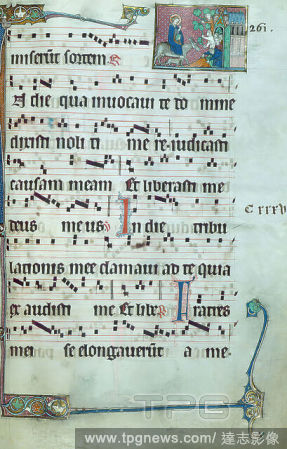 261.
miserūt sortem
In die qua invocavi te do mine
dixisti noli ti me re iudicasti
causam meam Et liberasti me
deus meus In die tribu
C xxxv
lacionis mee clamavi ad te quia
ex audisti me Et libe Fratres
mei se elongaverūt a me
TPG
www.tpgnews.com/ 達志影像